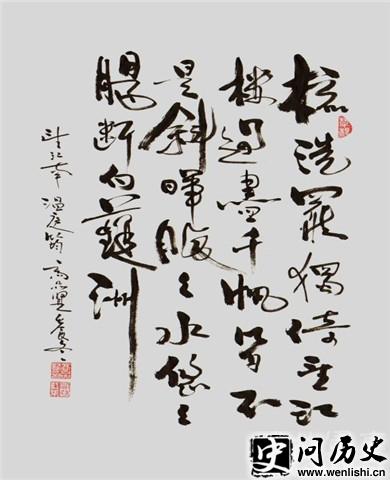 梳洗罷獨倚望江
樓過盡千帆皆不
是斜暉脈々水悠々
腸斷白蘋洲
望江南 温庭筠
史 问历史
www.wenlishi.cn